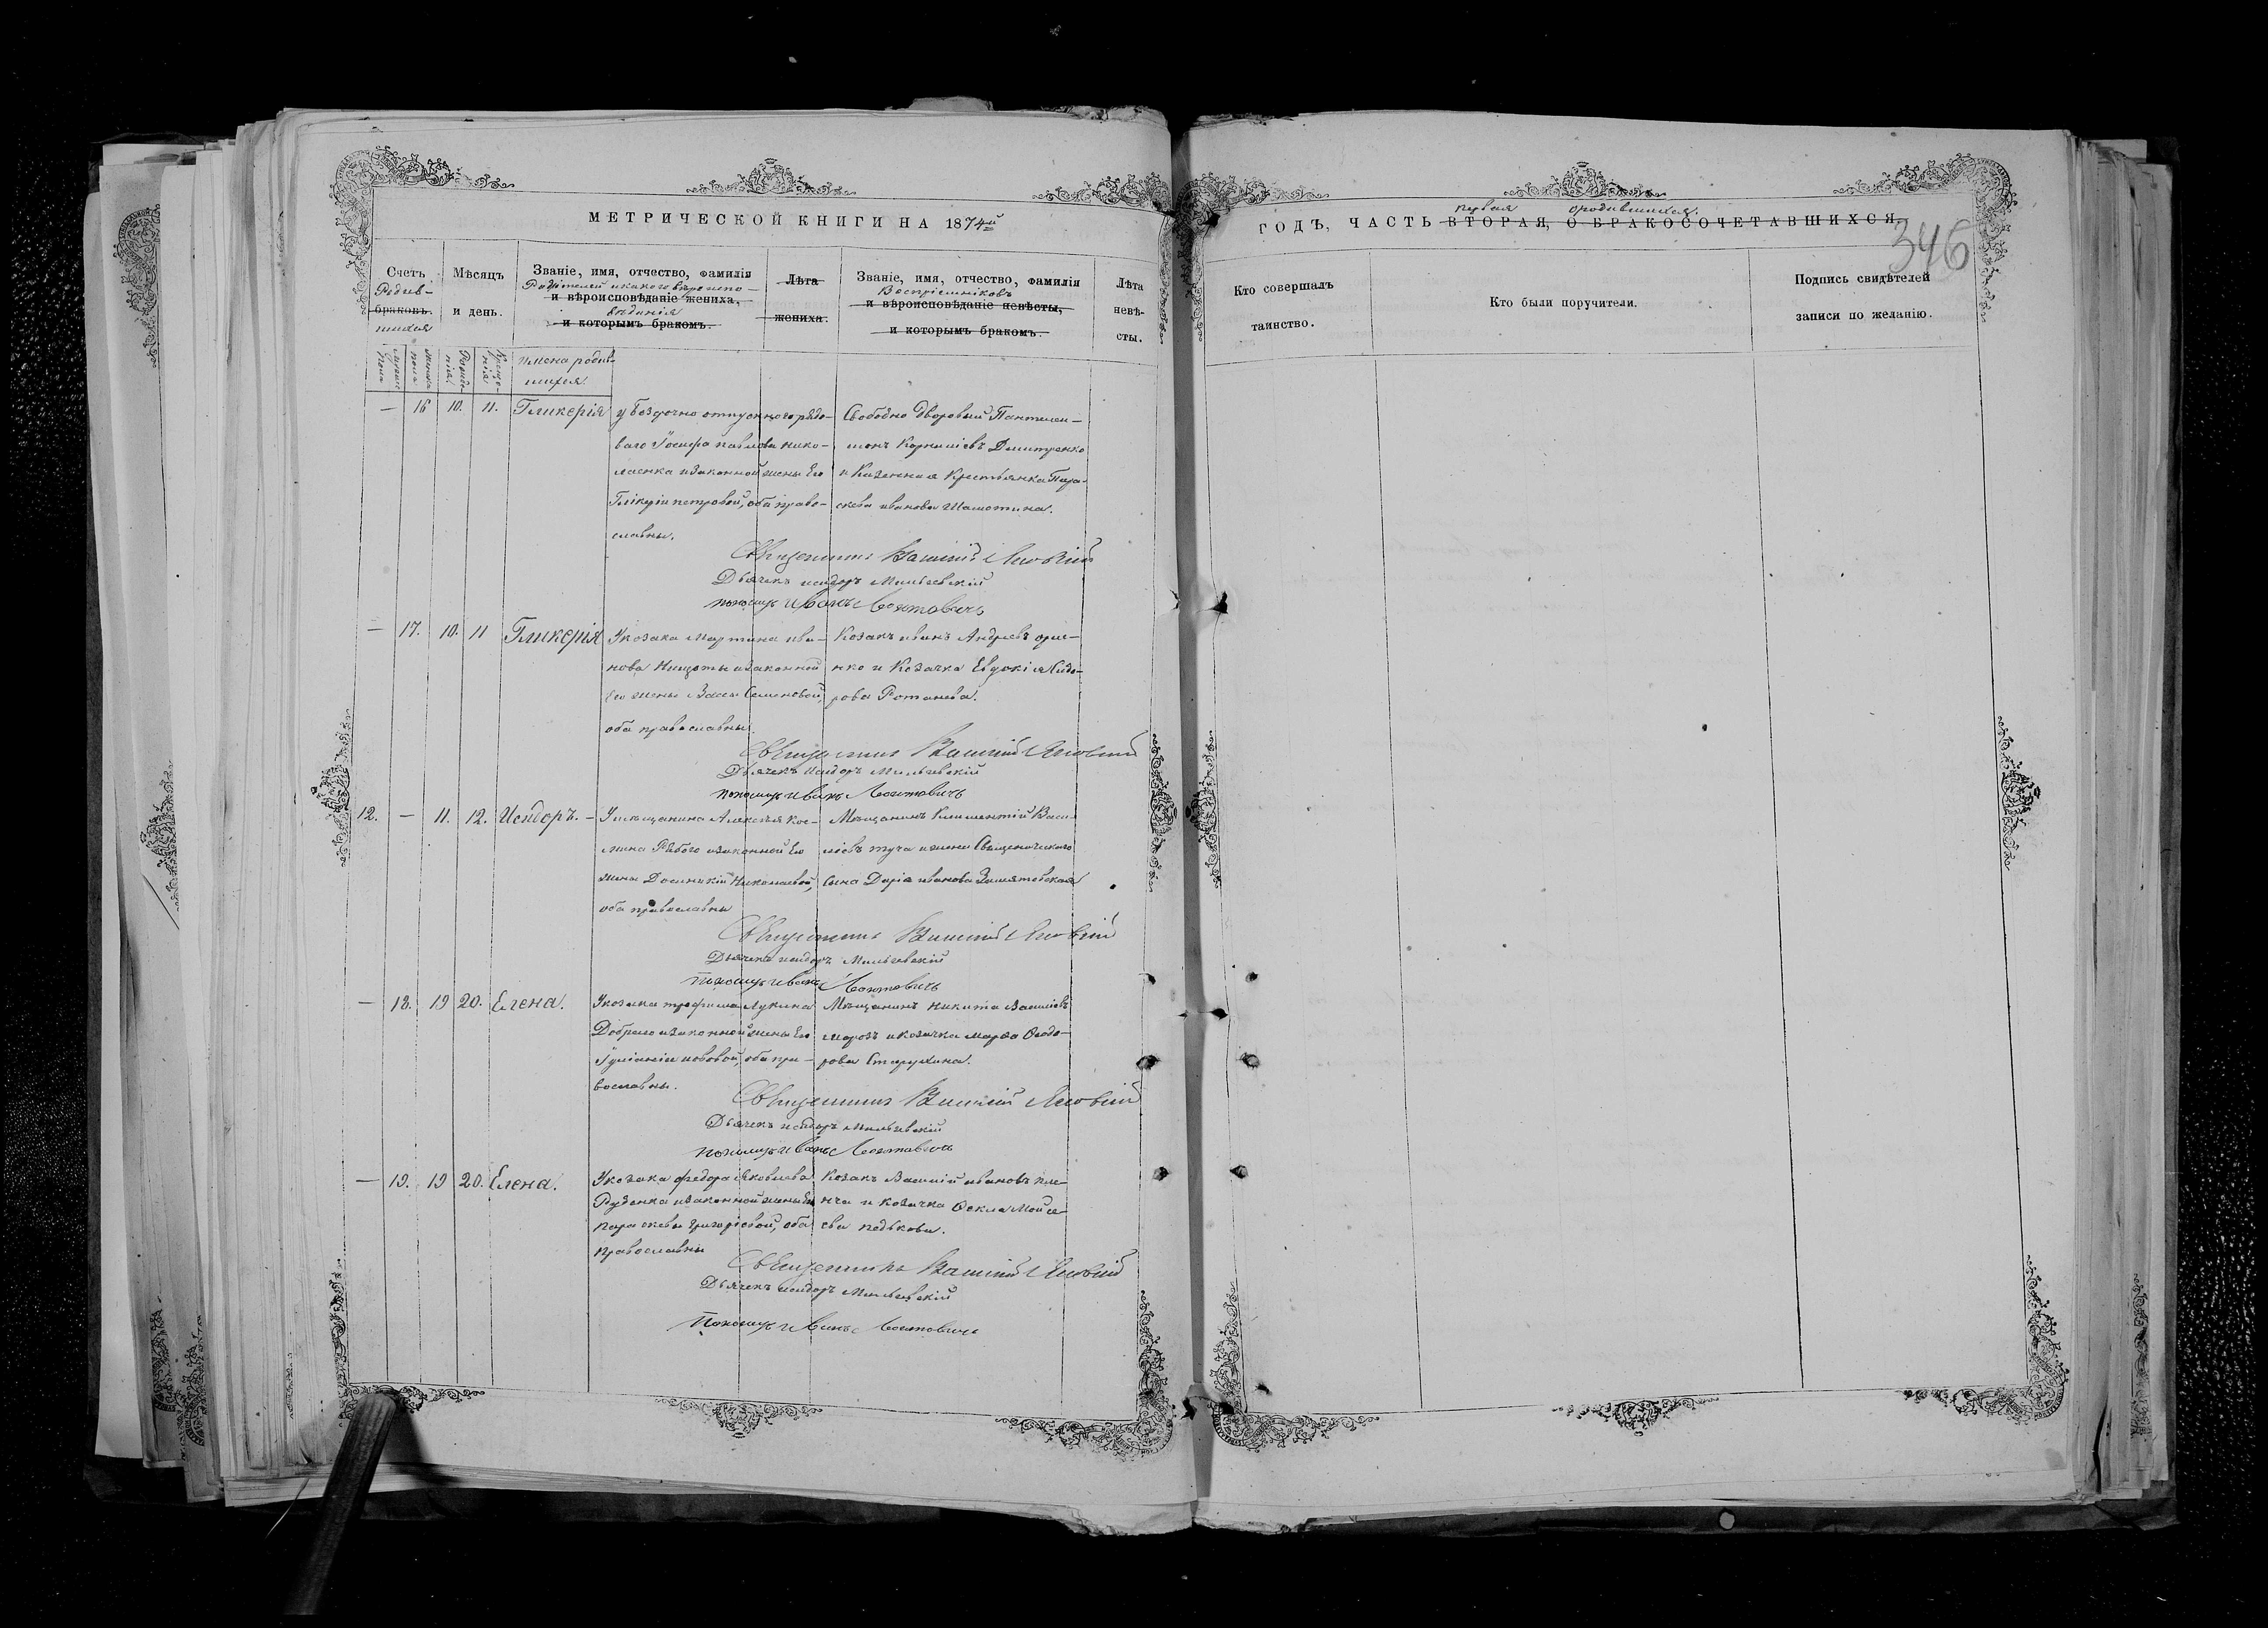 МЕТРИЧЕСКОЙ КНИГИ НА 1874й
ГОДЪ, ЧАСТЬ ВТОРАЯ, О БРАКОСОЧЕТАВШИХСЯ,
первая о родившихся.
346
Счетъ
Родив-
браковъ.
шихся
Мѣсяцъ
и день.
Званіе, имя, отчество, фамилія
Родителей и какого вѣроиспо-
и вѣроисповѣданіе жениха,
вѣданія
и которымъ бракомъ.
Лѣта
жениха.
Званіе, имя, отчество, фамилія
Воспріемниковъ
и вѣроисповѣданіе невѣсты,
и которымъ бракомъ.
Лѣта
невѣ-
сты.
Кто совершалъ
таинство.
Кто были поручители.
Подпись свидѣтелей
записи по желанію.
Имена родив-
шихся
— 16 10. 11. Гликерія
у безсрочно отпускного рядо-
ваго Іосифа павлова нико-
лаенка и законной жены Его
Глікеріи петровой, оба право-
славны.
Свободно дворовый Пантелеи-
монъ Корниліевъ Дмитренко
и Казенная Крестьянка Пара-
скева иванова
Священникъ Василій
Дьячекъ исидоръ
пономарь Иванъ Леонтовичъ
— 17. 10. 11 Гликерія
У козака Мартина ива-
нова Нищоты и законной
Его жены Вассы Семеновой,
оба православны.
Козакъ иванъ Андреевъ
и Козачка Евдокія Сидо-
рова
Священникъ Василій
Дьячекъ Исидоръ
пономарь Иванъ Леонтовичъ
12. — 11. 12. Исидоръ. —
У мѣщанина Алексѣя Кос-
мина Рябого и законной Его
жены Николаевой,
оба православны
Мѣщанинъ Климентій Васи-
ліевъ туча и жена Священическаго
сына Дарія иванова
Священникъ Василій
Дьячекъ исидоръ
пономарь Иванъ Леонтовичъ
— 18. 19 20. Елена.
У козака трофима Лукина
Доброго и законной жены Его
Іуліаніи оба пра-
вославны.
Мѣщанинъ никита Василіевъ
морозъ и козачка марѳа Ѳеодо-
рова
Священникъ Василій
Дьячекъ исидоръ
пономарь Иванъ Леонтовичъ
— 19. 19 20. Елена.
У козака федора Яковлева
Руденка и законной жены Его
параскевы григоріевой, оба
православны
Козакъ Василій ивановъ
и козачка Ѳекла Мойсе-
ева педькова.
Священникъ Василій
Дьячекъ исидоръ
Пономарь Иванъ Леонтовичъ